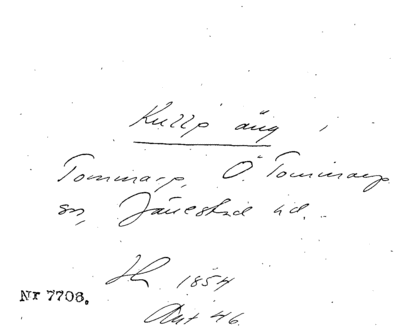 Kulls äng i
Tommarp, Ö. Tommarp
sn, Järrestad hd.
1854
Akt 46.
Nr 7706.